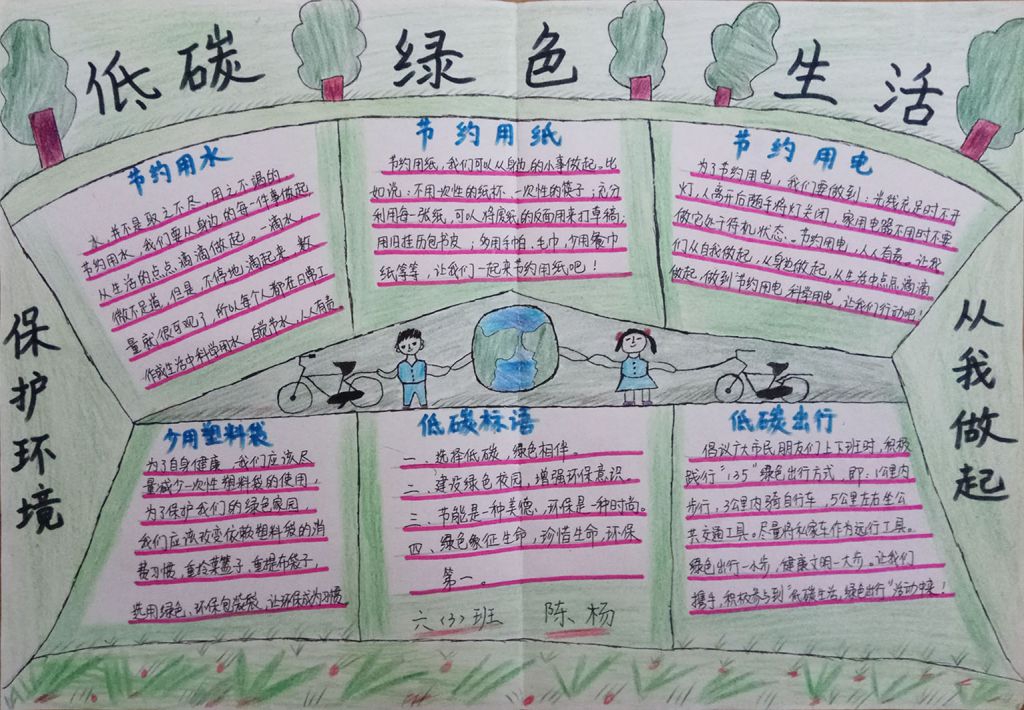 低碳 绿色 生活
保护环境
从我做起
节约用水
水,并不是取之不尽、用之不竭的,
节约用水,我们要从身边的每一件事做起
从生活的点点滴滴做起。一滴水,
微不足道,但是,不停地滴起来,数
量就很可观了,所以每个人都在日常工
作或生活中科学用水,自觉节水,人人有责。
节约用纸
节约用纸,我们可以从身边的小事做起。比
如说:不用一次性的纸杯、一次性的筷子;充分
利用每一张纸,可以将废纸的反面用来打草稿;
用旧挂历包书皮;多用手帕、毛巾,少用餐巾
纸等等,让我们一起来节约用纸吧!
节约用电
为了节约用电,我们要做到:光线充足时不开
灯,人离开后随手将灯关闭,家用电器不用时不要
做它处于待机状态。节约用电,人人有责。让我
们从自我做起,从身边做起,从生活中点点滴滴
做起,做到"节约用电,科学用电"让我们行动吧!
少用塑料袋
为了自身健康,我们应该尽
量减少一次性塑料袋的使用,
为了保护我们的绿色家园,
我们应该改变依赖塑料袋的消
费习惯,重拎菜篮子,重提布袋子,
选用绿色、环保包装袋,让环保成为习惯
低碳标语
一、选择低碳,绿色相伴。
二、建设绿色校园,增强环保意识。
三、节能是一种美德,环保是一种时尚。
四、绿色象征生命,珍惜生命,环保
第一。
六(3)班 陈杨
低碳出行
倡议广大市民朋友们上下班时,积极
践行"135"绿色出行方式,即:1公里内
步行,3公里内骑自行车,5公里左右坐公
共交通工具。尽量将私家车作为远行工具。
绿色出行一小步,健康文明一大步。让我们
携手,积极参与到"低碳生活,绿色出行"活动中来!